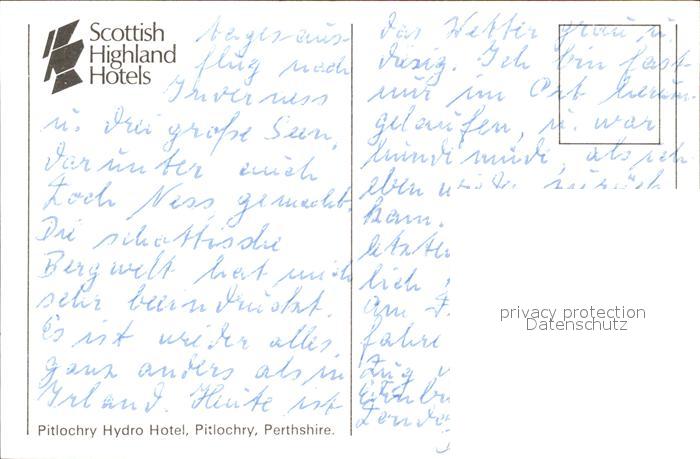 Scottish
Highland
Hotels
Tagesaus-
flug nach
Inverness
u. drei große Seen,
darunter auch
Loch Ness gemacht.
Die schottische
Bergwelt hat mich
sehr beeindruckt.
Es ist wieder alles
ganz anders als in
Irland. Heute ist
Pitlochry Hydro Hotel, Pitlochry, Perthshire.
das Wetter grau u.
diesig. Ich bin fast
nur im Ort herum-
gelaufen, u. war
hundemüde, als ich
eben wieder zurück
kam.
letzte
lich
am
fahre
Zug
Edinbu
London
privacy protection
Datenschutz